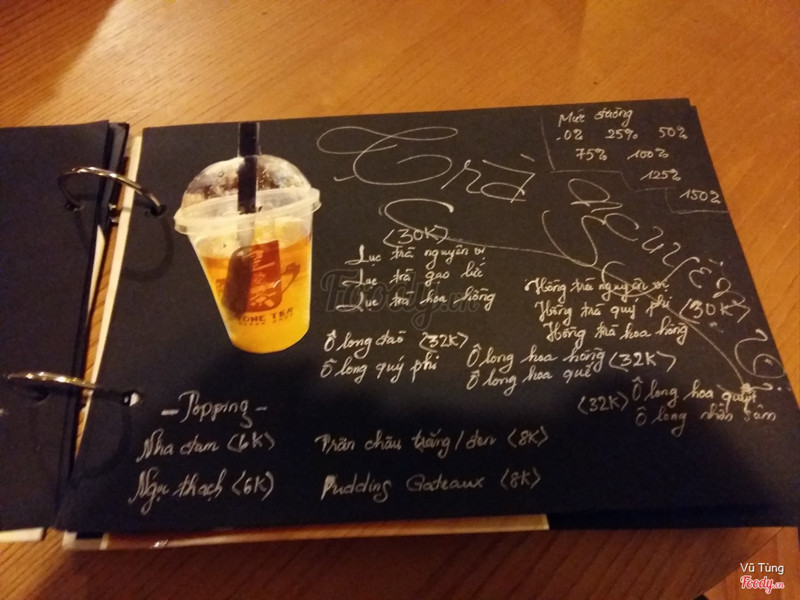 Mức đường
0% 25% 50%
75% 100%
125%
150%
Trà nguyên vị
(30K)
Lục trà nguyên vị
Lục trà gạo lức
Lục trà hoa hồng
Hồng trà nguyên vị
Hồng trà quý phi (30K)
Hồng trà hoa hồng
Ô long đào (32K)
Ô long quý phi
Ô long hoa hồng (32K)
Ô long hoa quế
(32K) Ô long hoa quýt
Ô long nhân sâm
TONE TEA
- Topping -
Nha đam (6K)
Trân châu trắng/đen (8K)
Ngọc thạch (6K)
Pudding Gateaux (8K)
Foody.vn
Vũ Tùng
Foody.vn